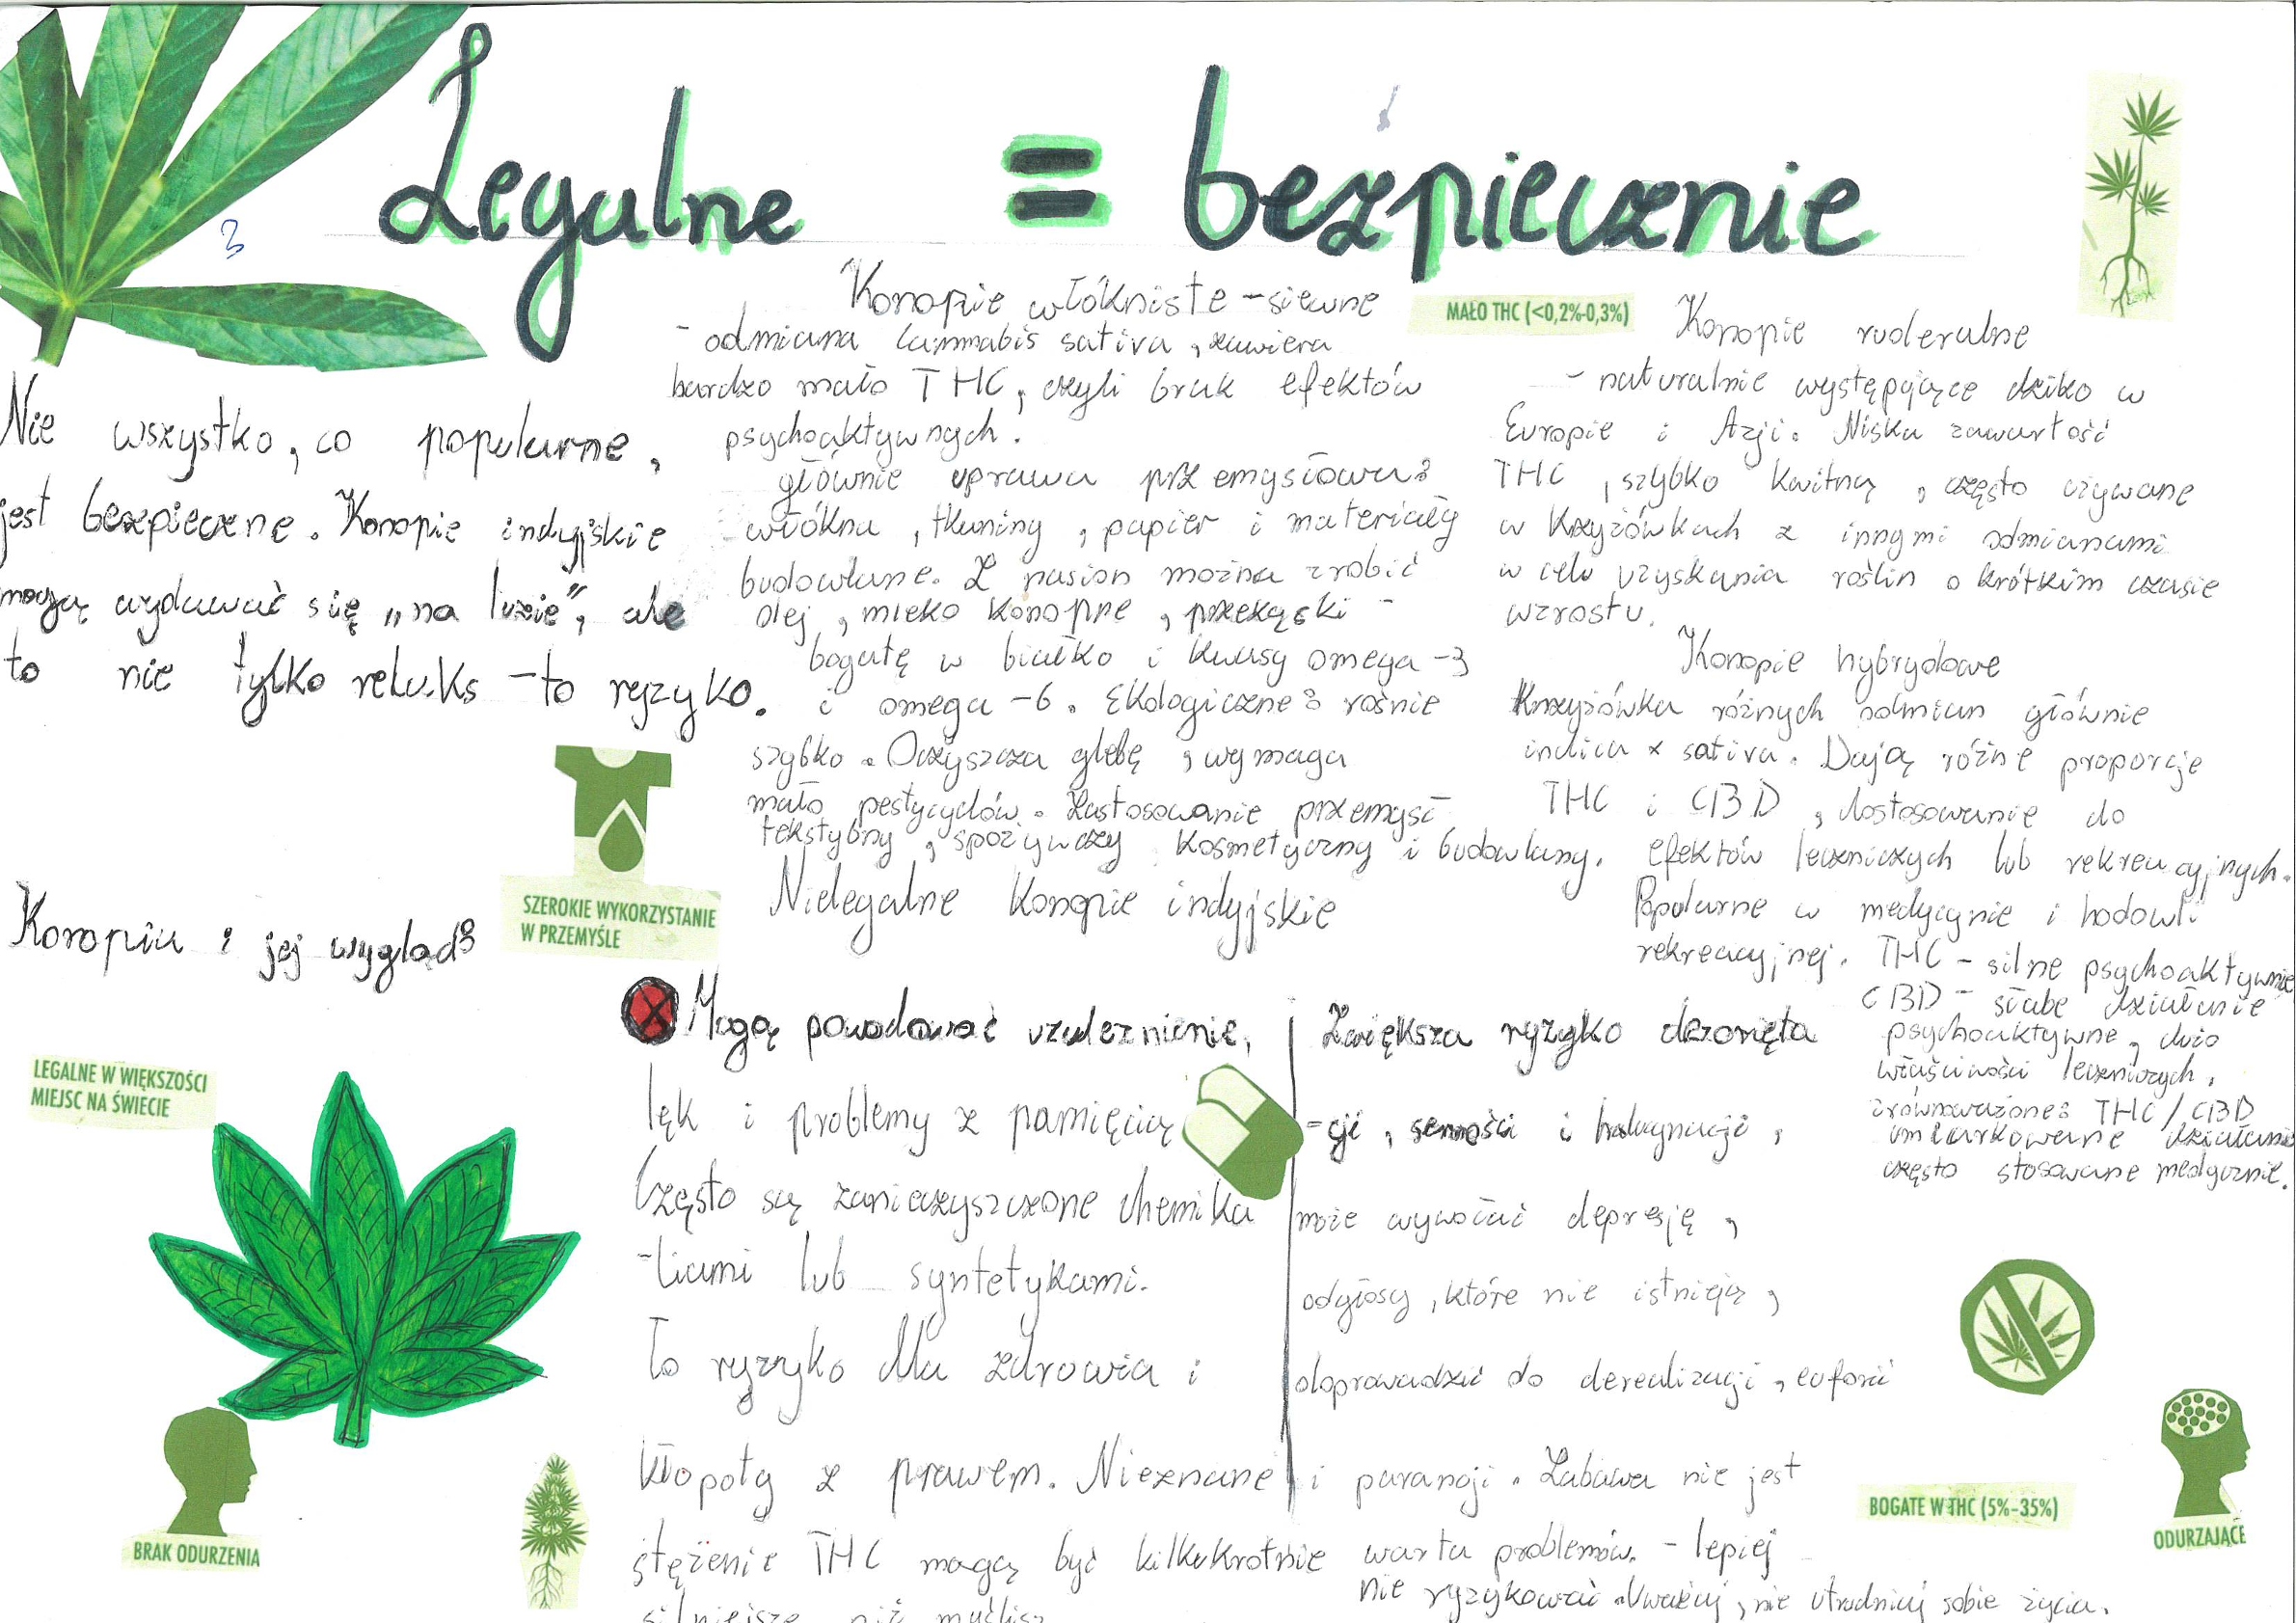 Legalne = bezpiecznie
Nie wszystko, co popularne,
jest bezpieczne. Konopie indyjskie
mogą wydawać się „na luzie”, ale
to nie tylko relaks – to ryzyko.
Konopia i jej wygląd:
LEGALNE W WIĘKSZOŚCI
MIEJSC NA ŚWIECIE
BRAK ODURZENIA
SZEROKIE WYKORZYSTANIE
W PRZEMYŚLE
Konopie włókniste – siewne
MAŁO THC (<0,2%-0,3%)
- odmiana Cannabis sativa, zawiera
bardzo mało THC, czyli brak efektów
psychoaktywnych.
głównie uprawa przemysłowa:
włókna, tkaniny, papier i materiały
budowlane. Z nasion można zrobić
olej, mleko konopne, przekąski -
bogatę w białko i kwasy omega-3
i omega-6. Ekologiczne: rośnie
szybko. Oczyszcza glebę, wymaga
mało pestycydów. Zastosowanie przemysł
tekstylny, spożywczy kosmetyczny i budowlany.
Nielegalne konopie indyjskie
Mogą powodować uzależnienie,
lęk i problemy z pamięcią
Często są zanieczyszczone chemika
-liami lub syntetykami.
To ryzyko dla zdrowia i
kłopoty z prawem. Nieznane
stężenie THC mogą być kilkukrotnie
silniejsze niż myślisz
Zwiększa ryzyko dezorięta
-cji, senności i halucynacji,
może wywołać depresję,
odgłosy, które nie istnieją,
doprowadzić do derealizacji, euforii
i paranoji. Zabawa nie jest
warta problemów. - lepiej
nie ryzykować. Uważaj, nie utrudniaj sobie życia.
Konopie ruderalne
- naturalnie występujące dziko w
Europie i Azji. Niska zawartość
THC, szybko kwitną, często używane
w krzyżówkach z innymi odmianami
w celu uzyskania roślin o krótkim czasie
wzrostu.
Konopie hybrydowe
Krzyżówka różnych odmian głównie
indica x sativa. Dają różne proporcje
THC i CBD, dostosowanie do
efektów leczniczych lub rekreacyjnych.
Popularne w medycynie i hodowli
rekreacyjnej. THC – silne psychoaktywnie
CBD – słabe działanie
psychoaktywne, dużo
właściwości leczniczych,
zrównoważone: THC/CBD
umiarkowane działanie
często stosowane medycznie.
BOGATE W THC (5%-35%)
ODURZAJĄCE